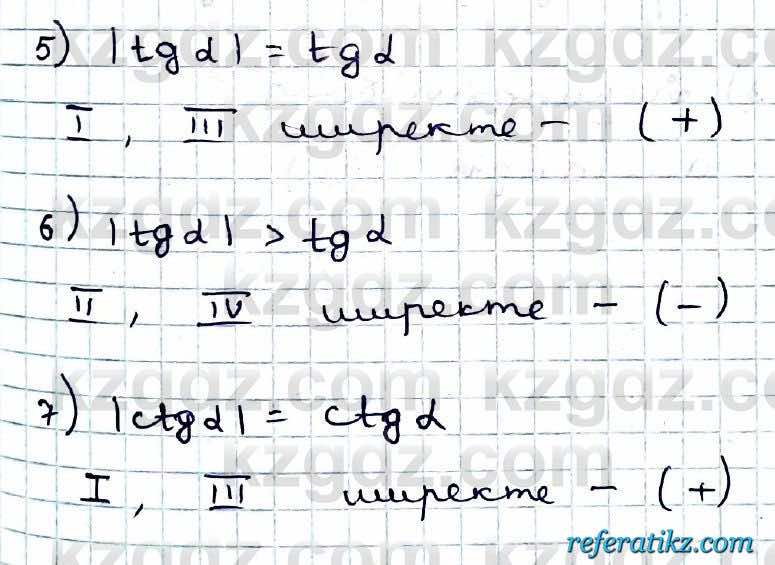 5) |tg α| = tg α
I, III ширекте - (+)
6) |tg α| > tg α
II, IV ширекте - (-)
7) |ctg α| = ctg α
I, III ширекте - (+)
kzgdz.com
referatikz.com